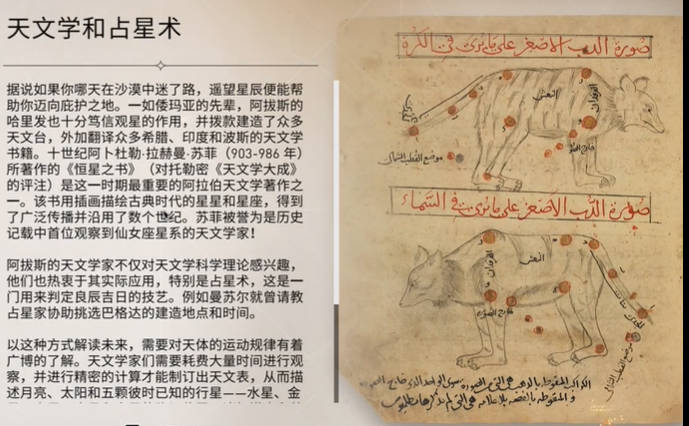 天文学和占星术
据说如果你哪天在沙漠中迷了路，遥望星辰便能帮
助你迈向庇护之地。一如倭玛亚的先辈，阿拔斯的
哈里发也十分笃信观星的作用，并拨款建造了众多
天文台，外加翻译众多希腊、印度和波斯的天文学
书籍。十世纪阿卜杜勒·拉赫曼·苏菲（903-986 年）
所著作的《恒星之书》（对托勒密《天文学大成》
的评注）是这一时期最重要的阿拉伯天文学著作之
一。该书用插画描绘古典时代的星星和星座，得到
了广泛传播并沿用了数个世纪。苏菲被誉为是历史
记载中首位观察到仙女座星系的天文学家！
阿拔斯的天文学家不仅对天文学科学理论感兴趣，
他们也热衷于其实际应用，特别是占星术，这是一
门用来判定良辰吉日的技艺。例如曼苏尔就曾请教
占星家协助挑选巴格达的建造地点和时间。
以这种方式解读未来，需要对天体的运动规律有着
广博的了解。天文学家们需要耗费大量时间进行观
察，并进行精密的计算才能制订出天文表，从而描
述月亮、太阳和五颗彼时已知的行星——水星、金
صورة الدب الاصغر على ما يرى في الكرة
النعش
الفرقدان
موضع القطب الشمالي
صورة الدب الاصغر على ما يرى في السماء
الفرقدان
النعش